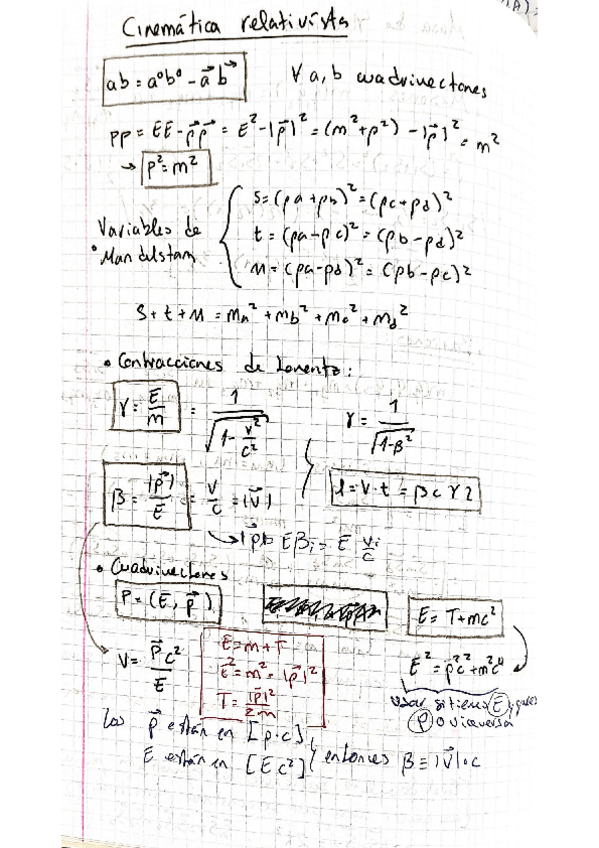 Cinemática relativista
ab = a⁰b⁰ - a⃗ b⃗   ∀ a, b cuadrivectores
pp = EE - p⃗p⃗ = E² - |p⃗|² = (m² + p²) - |p⃗|² = m²
→ p² = m²
Variables de Mandelstam
s = (pa + pb)² = (pc + pd)²
t = (pa - pc)² = (pb - pd)²
u = (pa - pd)² = (pb - pc)²
s + t + u = ma² + mb² + mc² + md²
• Contracciones de Lorentz:
γ = E/m = 1/√(1 - v²/c²)   γ = 1/√(1-β²)
β = |p⃗|/E = v/c = |v⃗|   l = v·t = βcγτ
Eβi = E vi/c
• Cuadrivectores
P = (E, p⃗)   E = T + mc²
v = p⃗c²/E   E² = p⃗²c² + m²c⁴
E = m + T
E² = m² - |p⃗|²
T = |p⃗|²/2m
usar si tienes E y quieres
p o viceversa
los p⃗ están en [p·c]
E están en [Ec²] entonces β ≡ |v⃗|·c